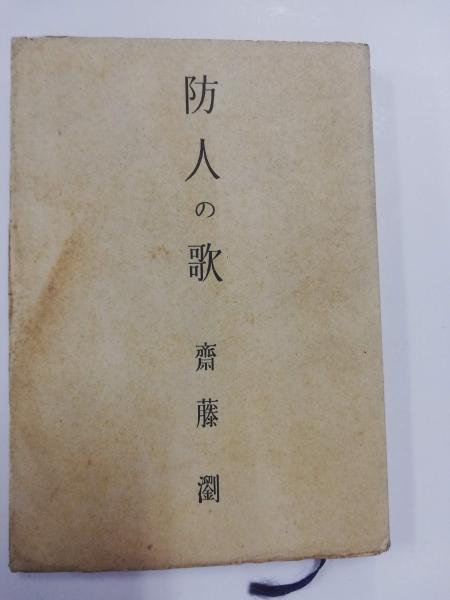 防人の歌
齋藤瀏